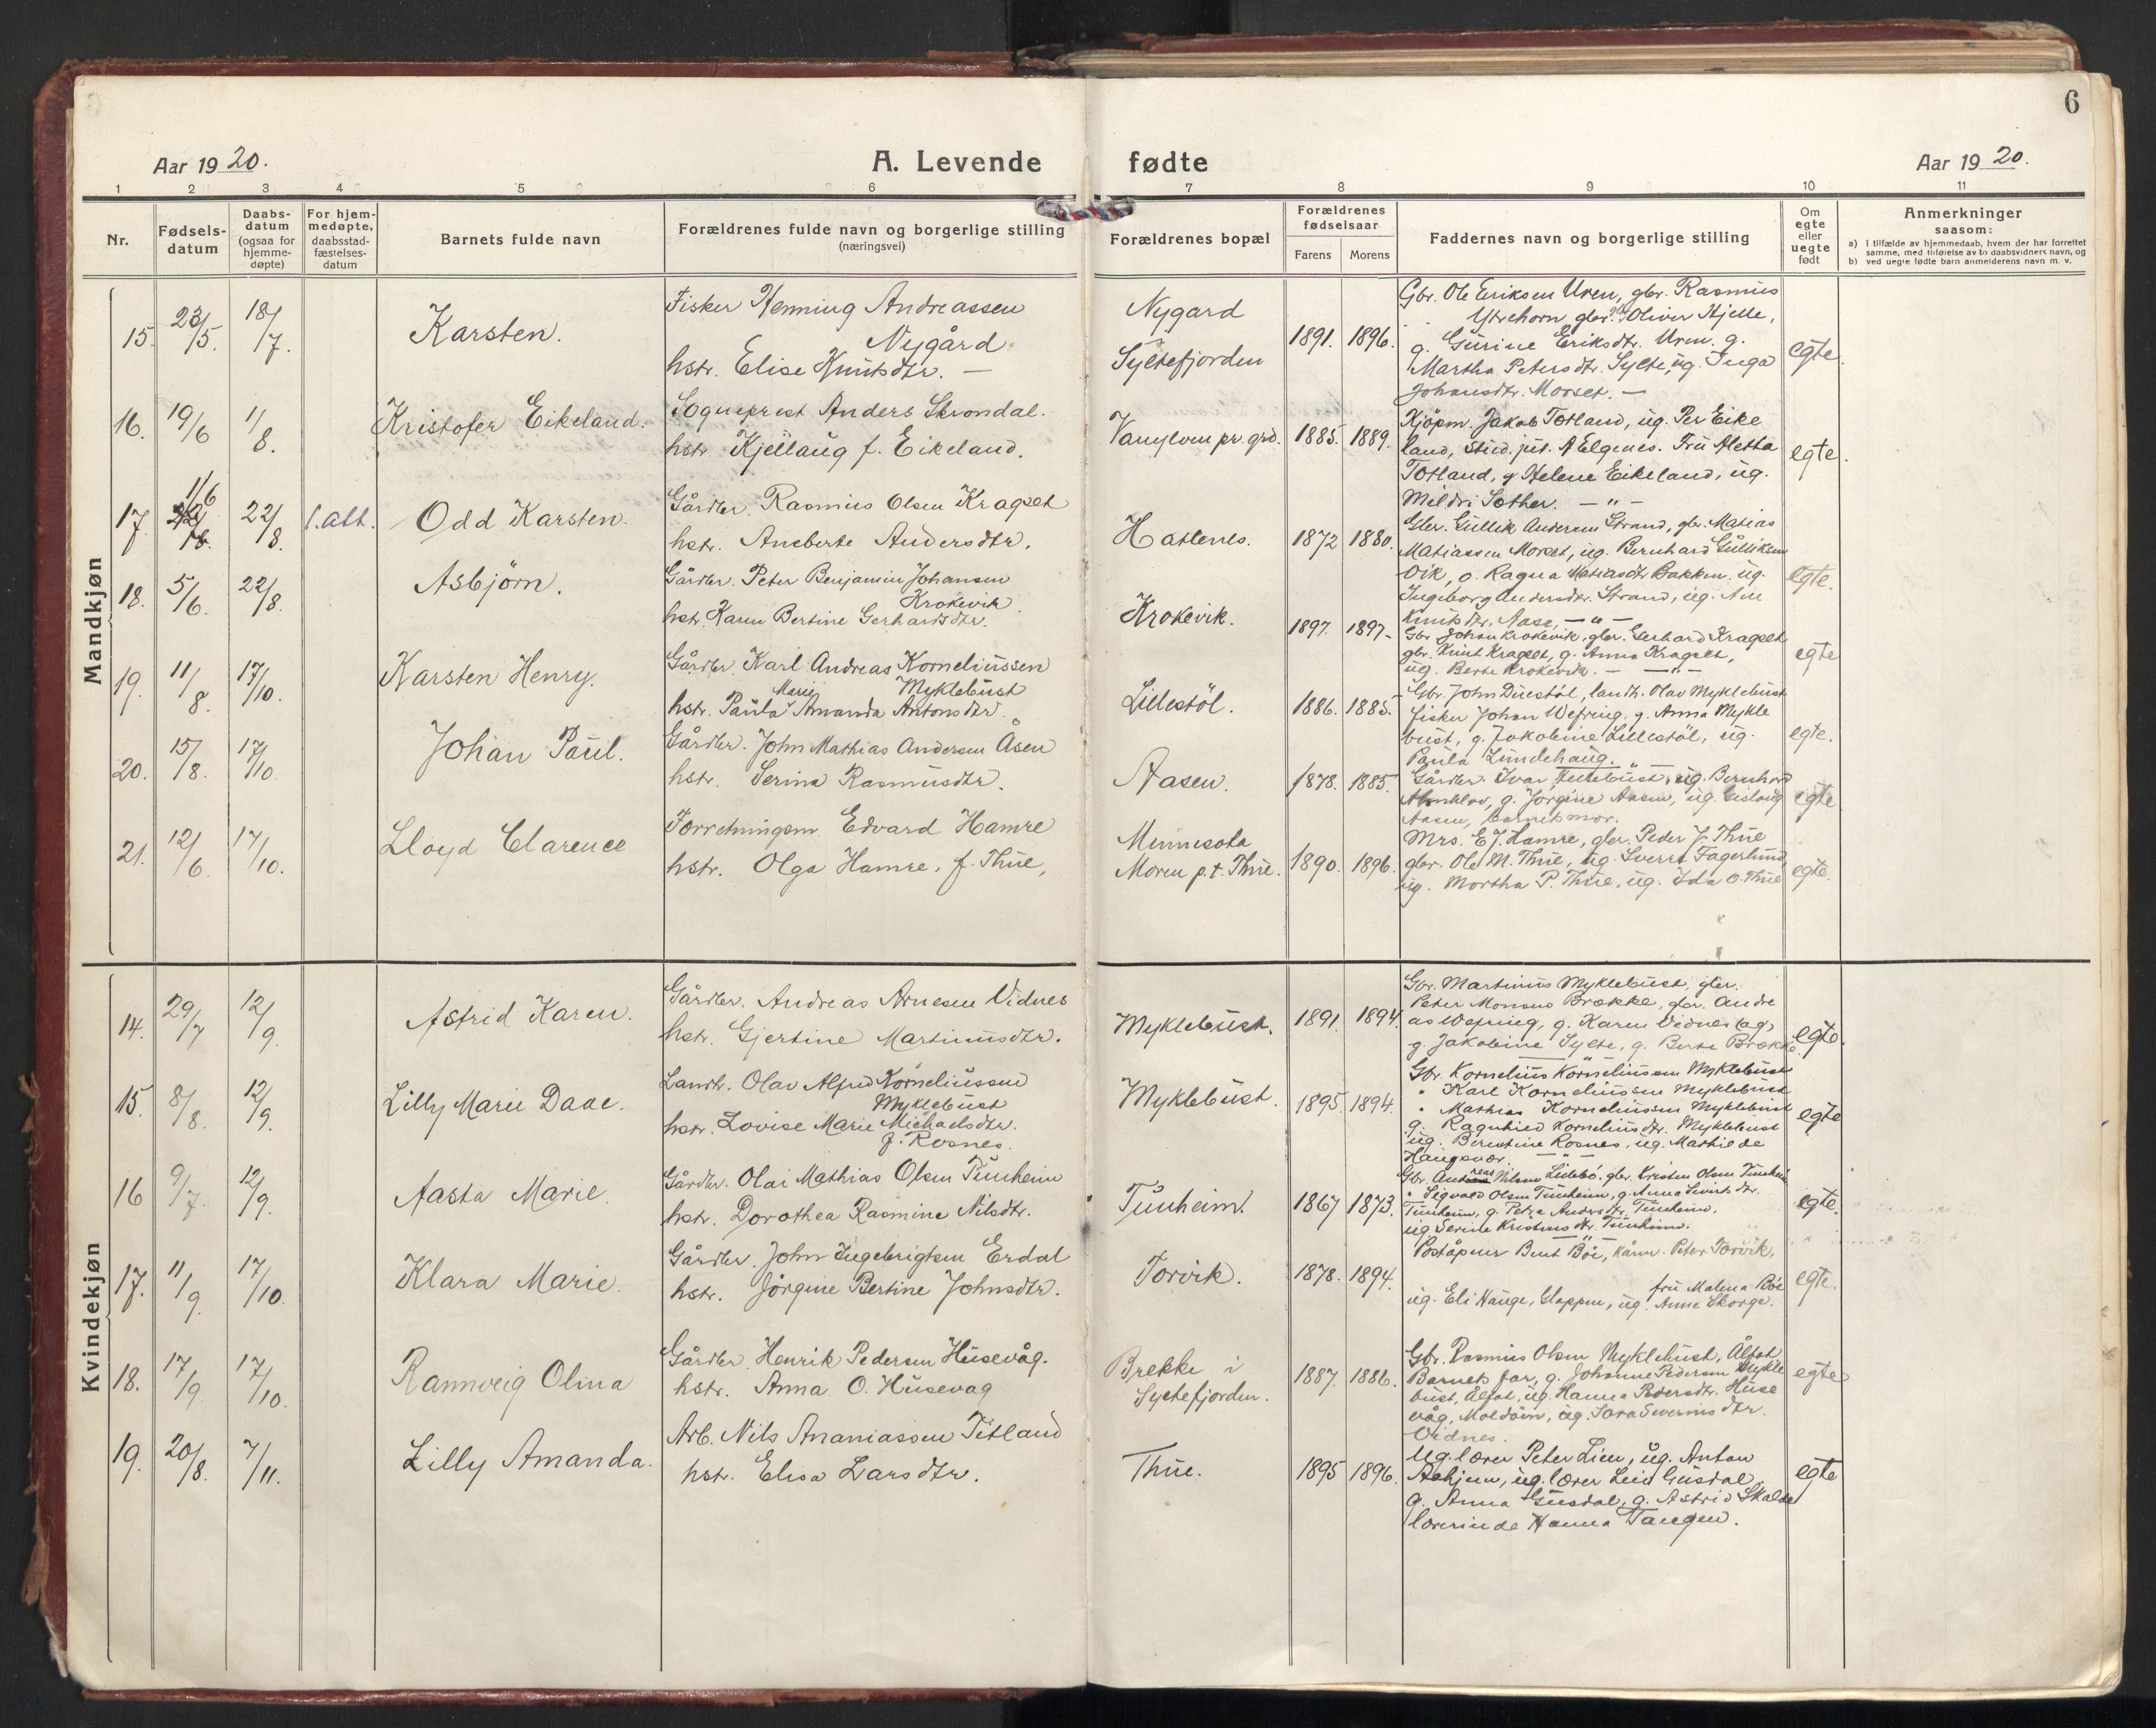 6
Aar 1920.
A. Levende fødte
Aar 1920.
1 2 3 4 5 6 7 8 9 10 11
Nr.
Fødsels-
datum
Daabs-
datum
(ogsaa for
hjemme-
døpte)
For hjem-
medøpte,
daabsstad-
fæstelses-
datum
Barnets fulde navn
Forældrenes fulde navn og borgerlige stilling
(næringsvei)
Forældrenes bopæl
Forældrenes
fødselsaar
Farens Morens
Faddernes navn og borgerlige stilling
Om
egte
eller
uegte
født
Anmerkninger
saasom:
a) i tilfælde av hjemmedaab, hvem der har forrettet
samme, med tilføielse av to daabsvidners navn, og
b) ved uegte fødte barn anmelderens navn m. v.
Mandkjøn
15. 23/5. 18/7. Karsten.
Fisker Henning Andreassen
Nygård
hstr. Elise Knutsdtr. —
Nygard
Syltefjorden
1891. 1896.
Gbr. Ole Eriksen Uren, gbr. Rasmus
Ytrehorn gbr. Oliver Hjelle,
g. Gurine Eriksdtr. Uren. g.
Martha Petersdtr. Sylte, ug. Inga
Johansdtr. Morset. —
egte.
16. 19/6 1/8. Kristofer Eikeland.
Sogneprest Anders Skrondal.
hstr. Kjellaug f. Eikeland.
Vanylven pr.grd. 1885. 1889.
Kjöpm. Jakob Totland, ug. Per Eike
land, Stud. jur. A Elgenes. Fru Aletta
Totland, g Helene Eikeland, ug.
Mildri Sæther. — " —
egte.
17. 1/6 22/8. 1. alt. Odd Karsten.
Gårdbr. Rasmus Olsen Kragset
hstr. Aneberte Andersdtr.
Hatlenes. 1872 1880.
Gbr. Gullik Andersen Strand, gbr. Matias
Matiassen Morset, ug. Bernhard Gulliksen
Vik, g. Ragna Matiasdtr Bakken. ug.
Ingeborg Andersdtr. Strand, ug. Ane
Knutsdtr. Aase, — " —
egte.
18. 5/6. 22/8. Asbjörn.
Gårdbr. Peter Benjamin Johansen
Krokevik.
hstr. Karen Bertine Gerhardsdtr.
Krokevik. 1897. 1897-
Gbr Johan Krokevik, gbr. Gerhard Kragset
gbr. Knut Kragset, g. Anna Kragset,
ug. Berte Krokevik. — " —
egte
19. 11/8. 17/10. Karsten Henry.
Gårdbr. Karl Andreas Korneliussen
Myklebust
Marie
hstr. Paula Amanda Antonsdtr.
Lillestöl. 1886. 1885.
Gbr. John Lillestöl, landh. Olav Myklebust
fisker Johan Wefring, g. Anna Mykle
bust, g. Jakobine Lillestöl, ug.
Paula Lundehaug. "
egte.
20. 15/8. 17/10. Johan Paul.
Gårdbr. John Mathias Andersen Åsen
hstr. Serina Rasmusdtr.
Aasen. 1878. 1885.
Gårdbr. Ivar Tellebust, ug. Bernhard
Almklov, g. Jorgine Aasen, ug. Gislaug
Aasen, barnets mor.
egte
21. 12/6. 17/10. Lloyd Clarence
Forretningsm. Edvard Hamre
hstr. Olga Hamre, f. Thue,
Minnesota
Moren p.t. Thue. 1890. 1896.
Mrs. E J. Hamre, gbr. Peder J. Thue
gbr. Ole M. Thue, ug. Sverre Fagerlund,
ug. Martha P. Thue, ug. Ida O. Thue
egte.
Kvindekjøn
14. 29/7 12/9. Astrid Karen.
Gårdbr. Andreas Arnesen Vidnes
hstr. Gjertine Martinusdtr.
Myklebust. 1891. 1894.
Gbr. Martinus Myklebust, gbr.
Peter Monsens Brække, gbr. Andre
as Wefring, g. Karen Vidnes
g. Jakobine Sylte, g. Berte Brække.
egte.
15. 8/8. 12/9. Lilly Marie Daae.
Landh. Olav Alfred Korneliussen
Myklebust
hstr. Lovise Marie Michaelsdtr.
f. Rosnes.
Myklebust. 1895. 1894.
Gbr. Kornelius Korneliussen Myklebust
" Karl Korneliussen Myklebust
" Mathias Korneliussen Myklebust
g. Ragnhild Korneliusdtr. Myklebust
ug. Berentine Rosnes, ug. Mathilde
Haugsvær. — " —
egte
16 9/7. 12/9. Aasta Marie.
Gårdbr. Olai Mathias Olsen Tunheim
hstr. Dorothea Rasmine Nilsdtr.
Tunheim. 1867 1873.
Gbr. Andreas Nilsen Lillebö, gbr. Kristen Olsen Tunheim
" Sigvald Olsen Tunheim, g. Anna Sivertsdtr.
Tunheim, g. Petra Andersdtr. Tunheim,
ug Serine Kristensdtr. Tunheim.
egte.
17. 11/9. 17/10. Klara Marie.
Gårdbr. John Ingebrigtsen Erdal
hstr. Jörgine Bertine Johnsdtr.
Torvik. 1878. 1894.
Poståpner Bent Böe, Peter Torvik,
fru Malena Böe
ug. Eli Hauge, Glappen, ug. Anne Skorge.
egte.
18. 17/9. 17/10. Rannveig Olina
Gårdbr. Henrik Pedersen Husevåg.
hstr. Anna O. Husevag
Brekke i
Syltefjorden. 1887. 1886.
Gbr. Rasmus Olsen Myklebust, Ålfot
Barnets far, g. Johanne Pedersen Mykle
bust, Ålfot, ug. Hanna Pedersdtr. Huse
våg, Moldöen, ug. Sara Severinsdtr.
Vidnes.
egte
19. 20/8. 7/11. Lilly Amanda.
Arb. Nils Ananiassen Titland
hstr. Elisa Larsdtr.
Thue. 1895 1896.
Ug. lærer Peter Lien, ug. Anton
Askjem, ug. lærer Leiv Gusdal,
g. Anna Gusdal, g. Astrid Skalde
lærerinde Hanna Tangen.
egte